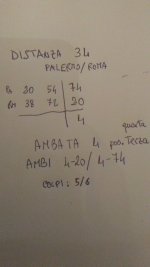 DISTANZA 34
PALERMO/ROMA
Pa 20 54 74
Rm 38 72 20
4
quarta
AMBATA 4 pos. Terza
AMBI 4-20/4-74
COLPI: 5/6